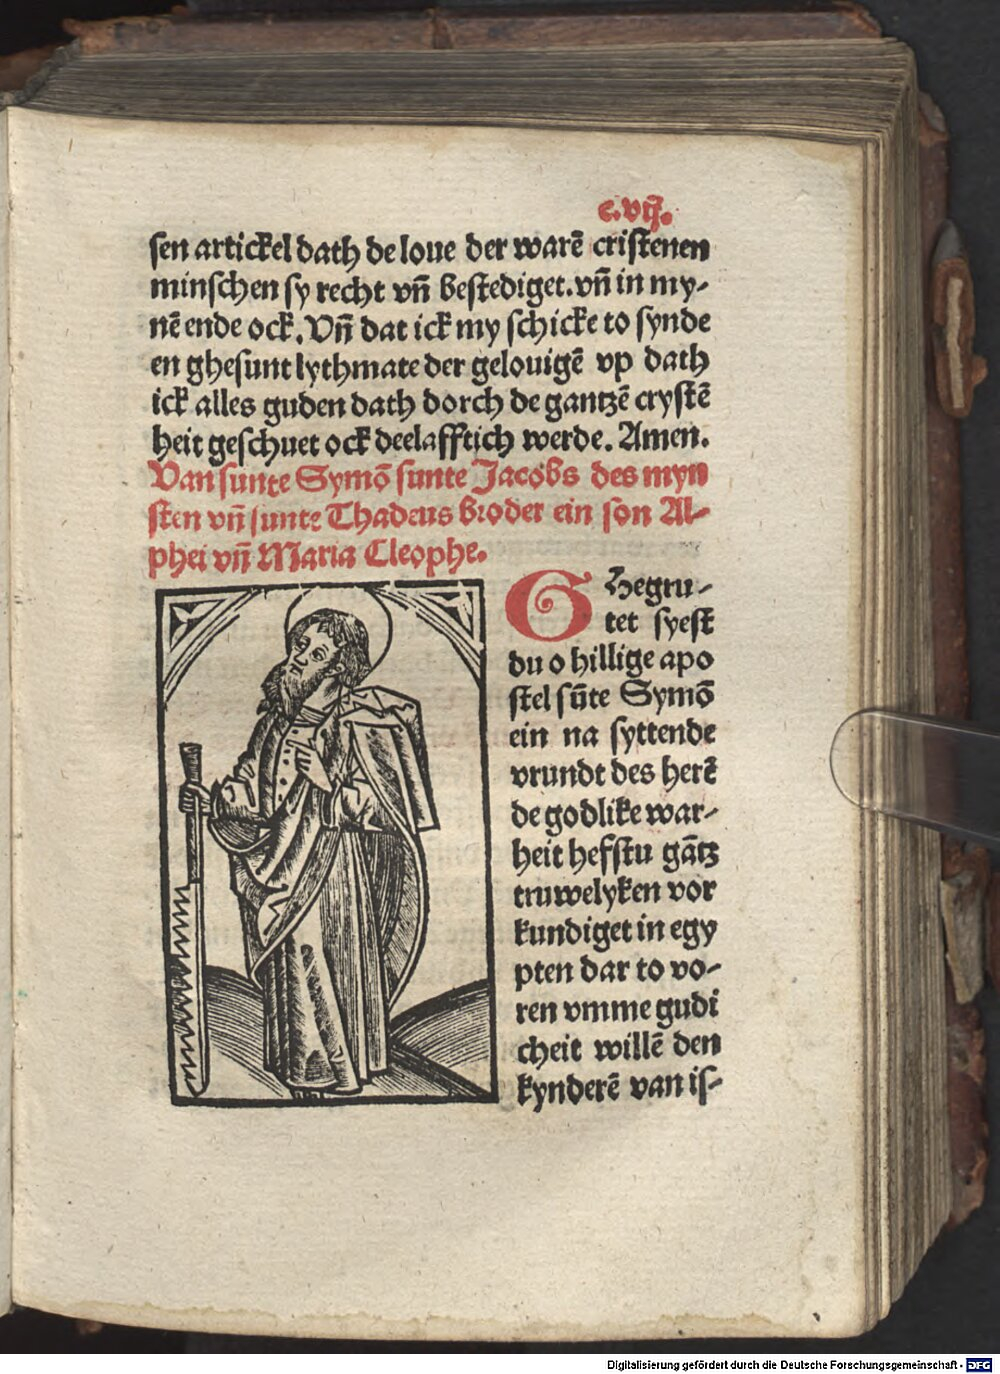 c.vij.
sen artickel dath de loue der warē cristenen
minschen sy recht vn̄ bestediget. vn̄ in my-
nē ende ock. Vn̄ dat ick my schicke to synde
en ghesunt lythmate der gelouigē vp dath
ick alles guden dath dorch de gantzē crystē
heit geschuet ock deelafftich werde. Amen.
Van sunte Symō sunte Jacobs des myn
sten vn̄ sunte Thadeus broder ein son Al-
phei vn̄ Maria Cleophe.
GHegru-
tet syest
du o hillige apo
stel sūte Symō
ein na syttende
vrundt des herē
de godlike war-
heit hefstu gātz
truwelyken vor
kundiget in egy
pten dar to vo-
ren vmme gudi
cheit willē den
kynderē van is-
Digitalisierung gefördert durch die Deutsche Forschungsgemeinschaft - DFG